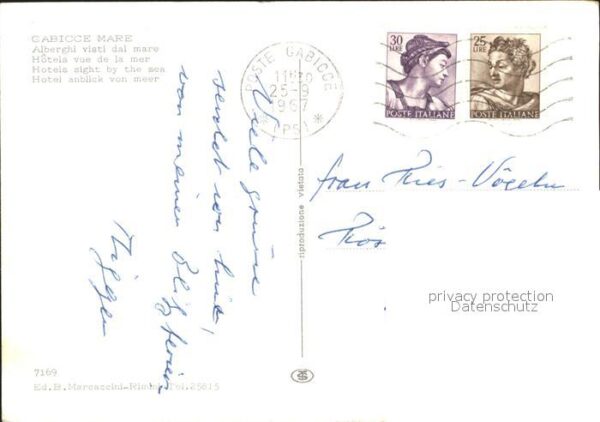 GABICCE MARE
Alberghi visti dal mare
Hôtels vue de la mer
Hotels sight by the sea
Hotel anblick von meer
POSTE GABICCE
25-9
1967
(PS)
30
LIRE
POSTE ITALIANE
25
LIRE
POSTE ITALIANE
Viele Grüsse
sendet von hier,
von meinen
Frau Ries-Vögelin
riproduzione vietata
privacy protection
Datenschutz
7169
Ed. B. Marcaccini-Rimini Tel. 25615